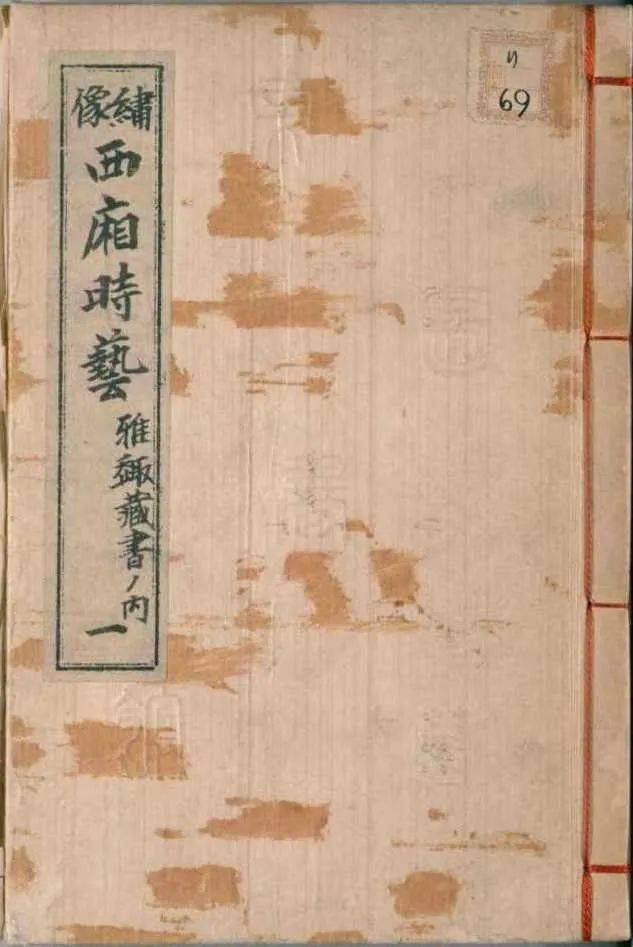 繡像
西廂時藝
雅趣藏書ノ內
一
り
69